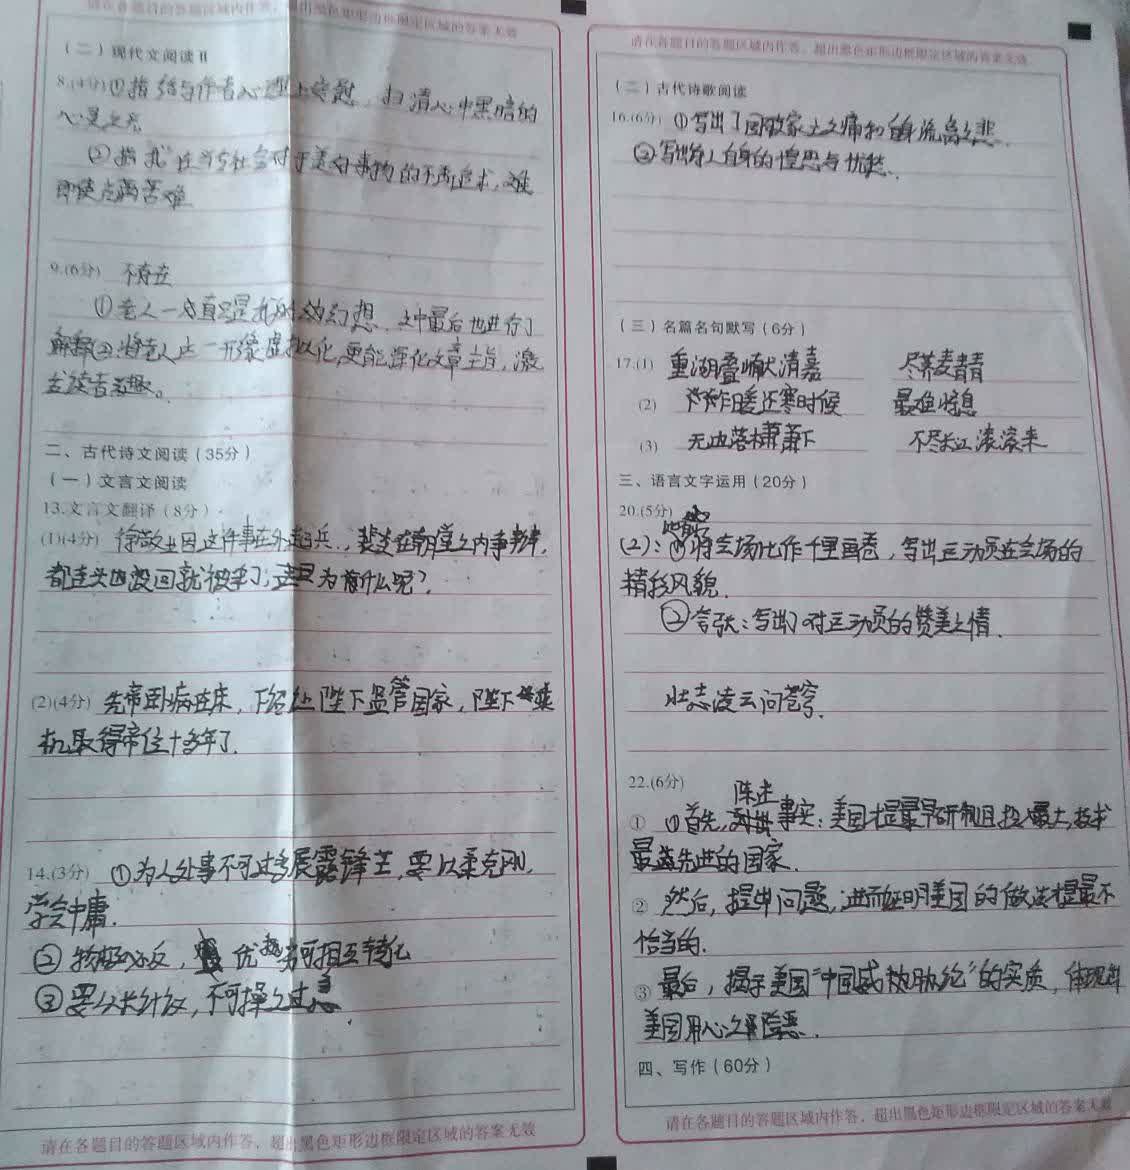 请在各题目的答题区域内作答，超出黑色矩形边框限定区域的答案无效
（二）现代文阅读Ⅱ
8.(4分)①指给与作者心理上安慰，扫清心中黑暗的
心灵之光
②指"我"在当与社会对于美好事物的不断追求，
即使点滴苦难
9.(6分) 不存在
①老人一成直只是我的幻想，文中最后也进行了
解释②将老人这一形象虚拟化，更能深化文章主旨，激
发读者兴趣。
二、古代诗文阅读（35分）
（一）文言文阅读
13.文言文翻译（8分）
(1)(4分) 徐敬业因这件事在外起兵，裴炎在朝堂之内争辩，
都连头也没回就被杀了，这是为什么呢？
(2)(4分) 先帝卧病在床，下诏让陛下监管国家，陛下乘
机取得帝位十多年了.
14.(3分) ①为人处事不可过多展露锋芒，要以柔克刚，
学会中庸.
②物极必反，优劣可相互转化
③要从长计议，不可操之过急.
请在各题目的答题区域内作答，超出黑色矩形边框限定区域的答案无效
请在各题目的答题区域内作答，超出黑色矩形边框限定区域的答案无效
（二）古代诗歌阅读
16.(6分) ①写出了国破家亡之痛和自身流离之悲.
②写出诗人自身的惶恐与忧愁.
（三）名篇名句默写（6分）
17.(1) 重湖叠巘清嘉 尽荠麦青青
(2) 乍暖还寒时候 最难将息
(3) 无边落木萧萧下 不尽长江滚滚来
三、语言文字运用（20分）
20.(5分)
(2)：①比喻 将会场比作千里画卷，写出运动员在会场的
精彩风貌.
②夸张：写出了对运动员的赞美之情.
壮志凌云问苍穹.
22.(6分)
① ①首先，陈述事实：美国才是最早研制且投入最大，技术
最先进的国家.
② 然后，提出问题，进而证明美国的做法才是最不
恰当的.
③ 最后，揭示美国"中国威胁论"的实质，体现出
美国用心之险恶.
四、写作（60分）
请在各题目的答题区域内作答，超出黑色矩形边框限定区域的答案无效